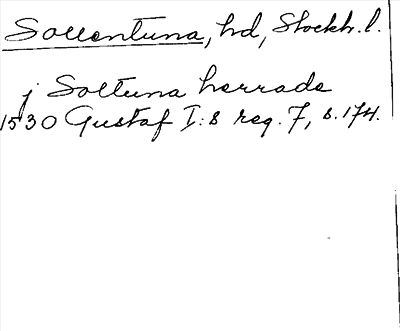 Sollentuna, hd, Stockh. l.
j Soltuna herrade
1530 Gustaf I:s reg. 7, s. 174.